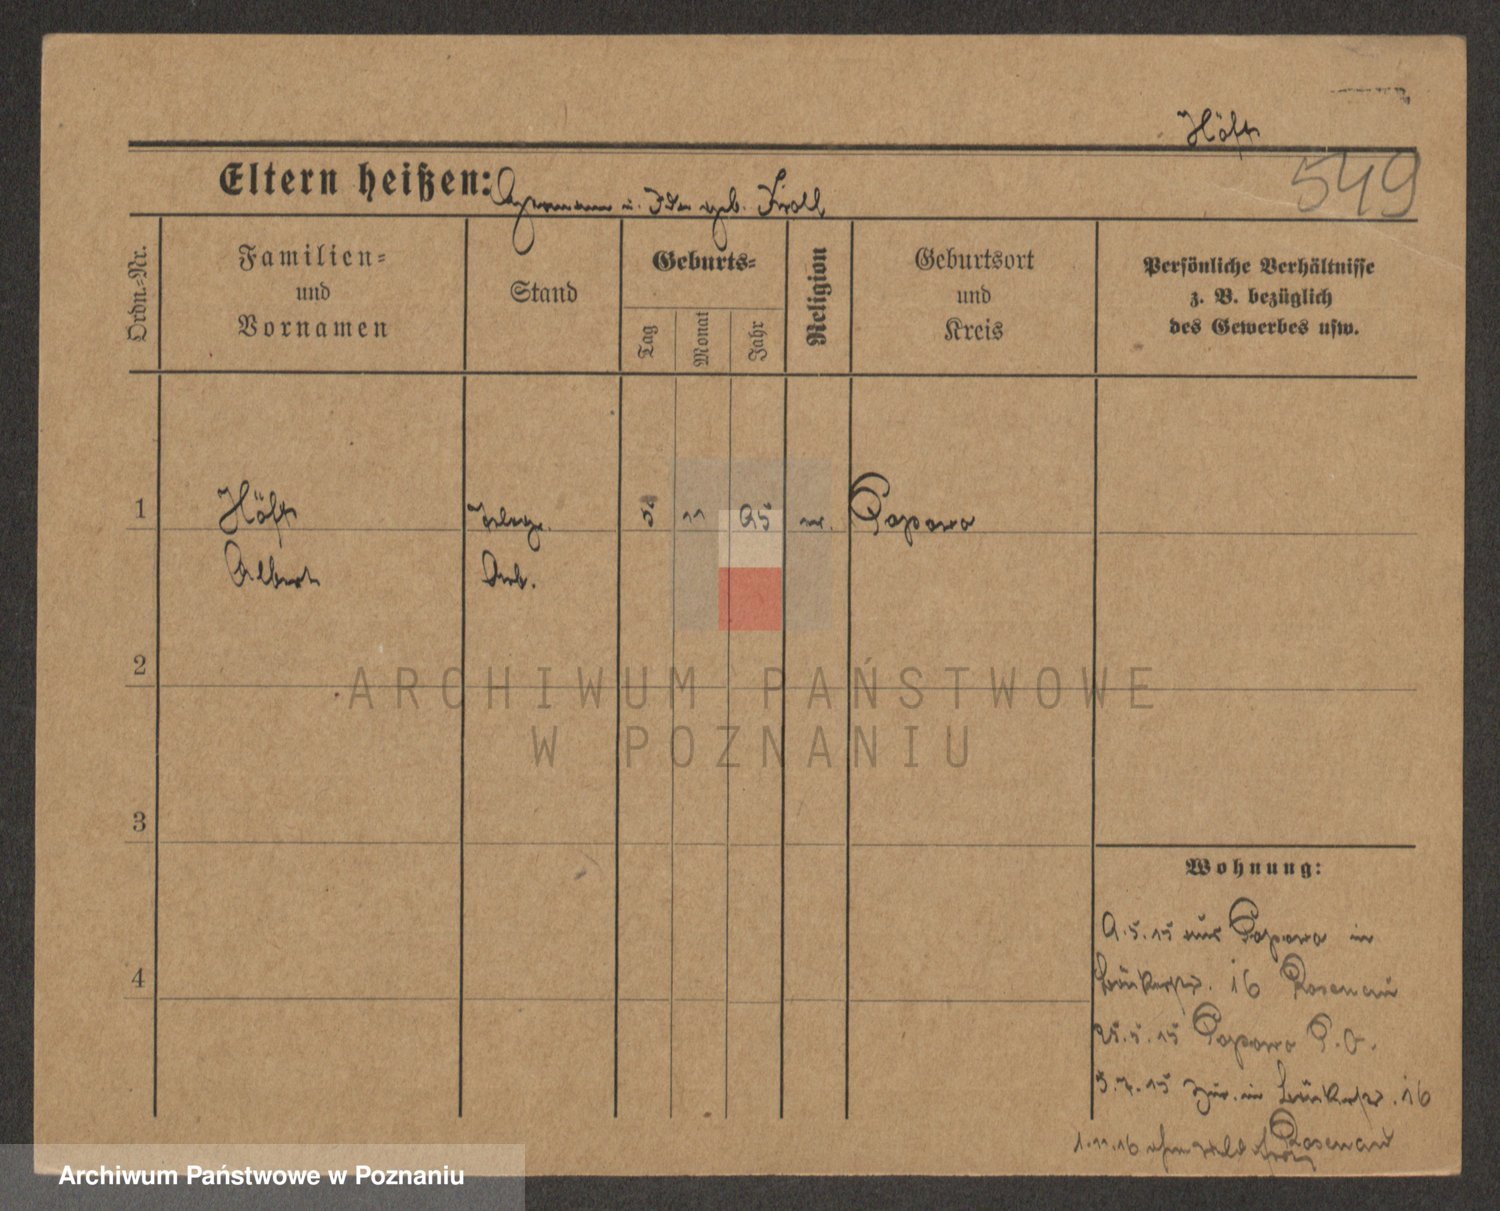 Höft
549
Eltern heißen: Hermann u. Ida geb. Kroll
Ordn.-Nr.
Familien-
und
Vornamen
Stand
Geburts-
Tag
Monat
Jahr
Religion
Geburtsort
und
Kreis
Persönliche Verhältnisse
z. B. bezüglich
des Gewerbes usw.
1
Höft
Albert
Arb.
5
11
95
ev.
Papowo
2
ARCHIWUM PAŃSTWOWE
W POZNANIU
3
4
Wohnung:
9.5.15 aus Papowo in
16 Rosenau
25.5.15 Papowo
5.7.15 zur. in 16
1.11.16 Rosenau
Archiwum Państwowe w Poznaniu